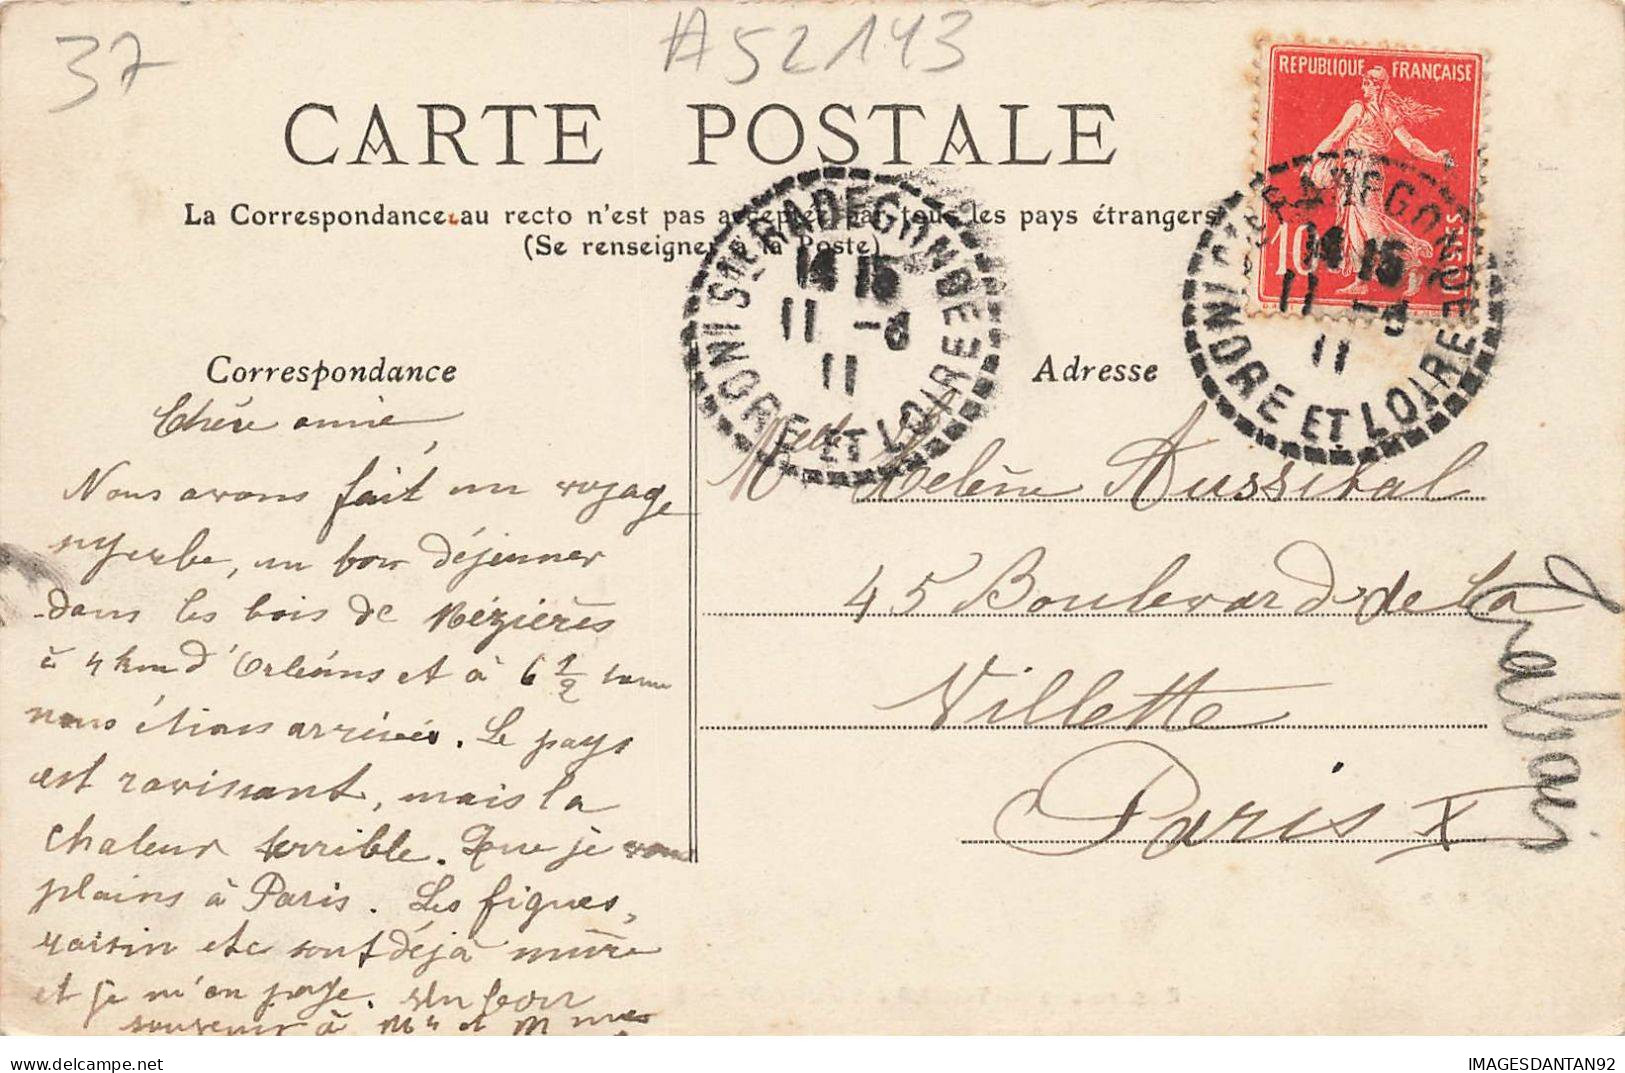 37
A52143
CARTE POSTALE
La Correspondance au recto n'est pas acceptée par tous les pays étrangers
(Se renseigner à la Poste)
REPUBLIQUE FRANÇAISE
10
POSTES
STE RADEGONDE
14 15
11 -8
11
INDRE ET LOIRE
STE RADEGONDE
14 15
11 -8
11
INDRE ET LOIRE
Correspondance
Chère amie,
Nous avons fait un voyage
superbe, un bon déjeuner
dans les bois de Mézières
à 4 km d'Orléans et à 6 1/2
nous étions arrivés. Le pays
est ravissant, mais la
chaleur terrible. Que je vous
plains à Paris. Les figues,
raisin etc sont déjà mûre
et je m'en paye. Un bon
souvenir à Mr et Mmes
Adresse
Melle Hélène Aussibal
45 Boulevard de la
Villette
Paris X
IMAGESDANTAN92